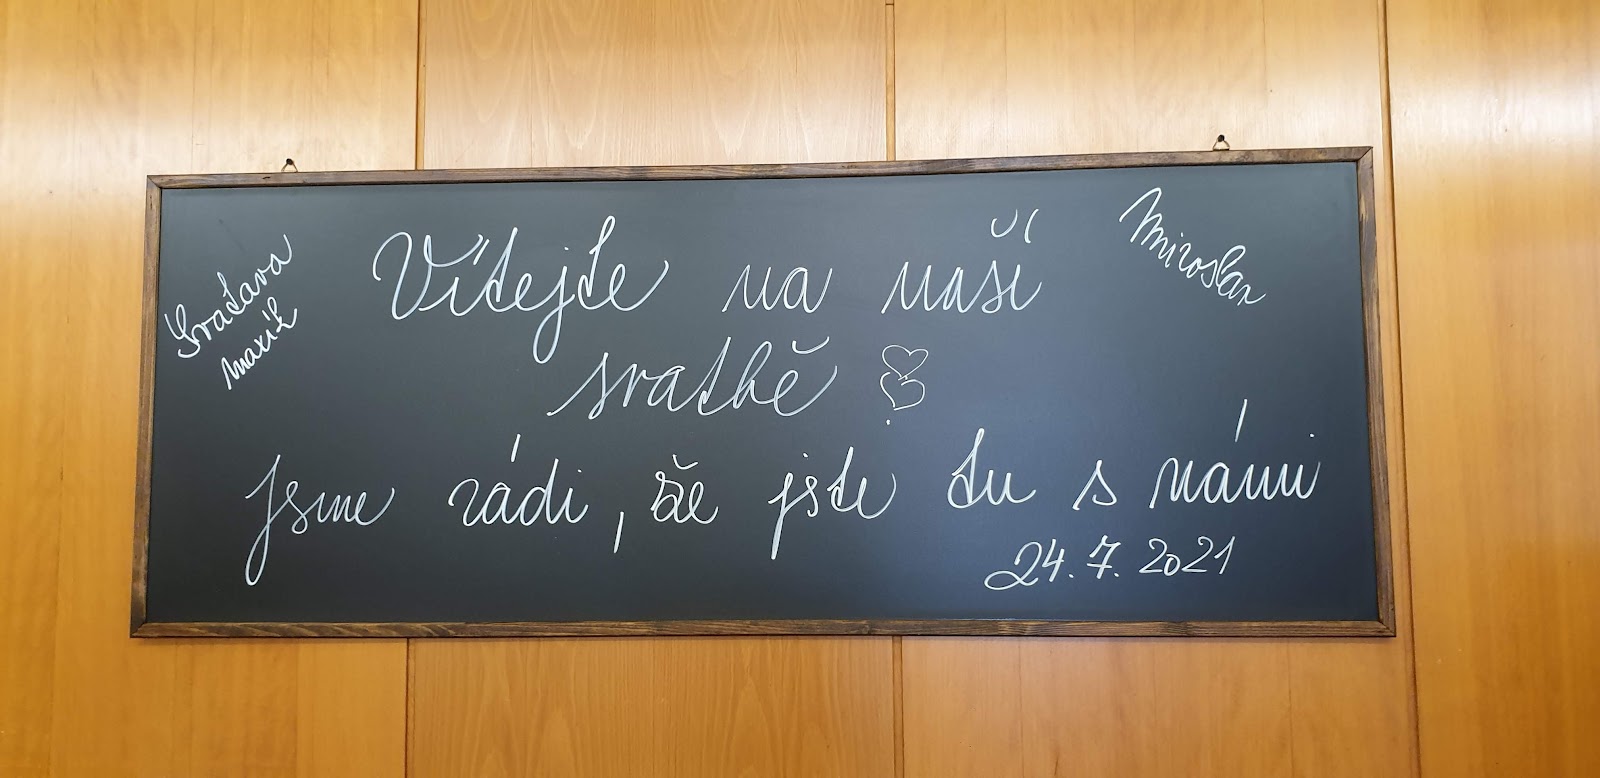 Svatava
Maxík
Miroslav
Vítejte na naší
svatbě
Jsme rádi, že jste tu s námi
24.7.2021